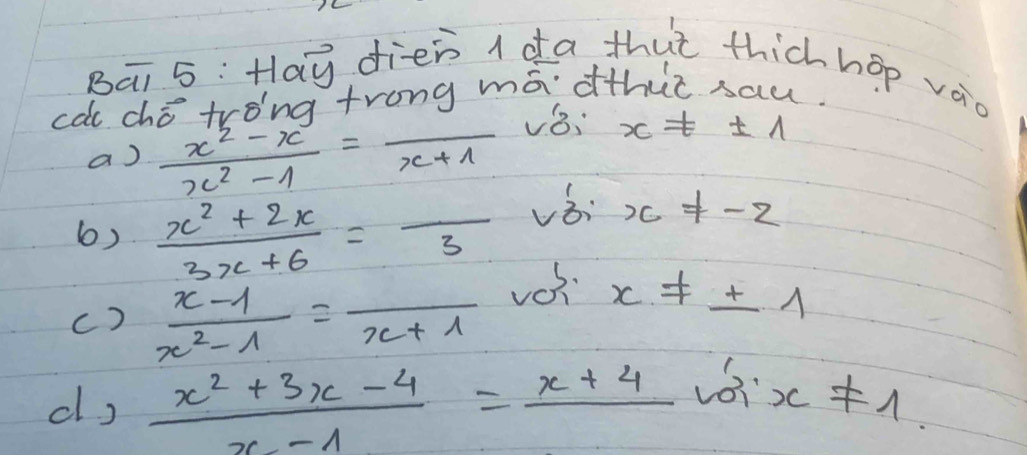 Bài 5 : Hãy điền 1 đa thức thích hợp vào
các chỗ trống trong mỗi đthức sau.
a) \frac{x^2 - x}{x^2 - 1} = \frac{}{x + 1} với x ≠ ± 1
b) \frac{x^2 + 2x}{3x + 6} = \frac{}{3} với x ≠ -2
c) \frac{x - 1}{x^2 - 1} = \frac{}{x + 1} với x ≠ ± 1
d) \frac{x^2 + 3x - 4}{x - 1} = \frac{x + 4}{} với x ≠ 1.